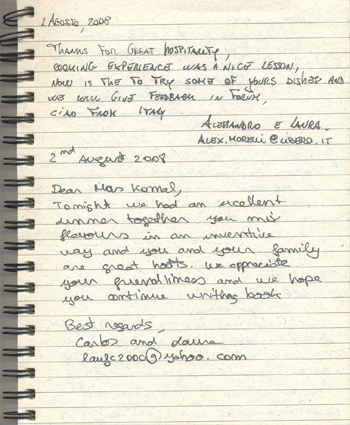 2 Agosto, 2008
Thanks for great hospitality,
cooking experience was a nice lesson,
now is the to try some of yours dishes and
we will give feedback in forum,
ciao from Italy
Alessandro e Laura
2nd August 2008
Dear Mrs Komal,
Tonight we had an excellent
dinner together you mix
flavours in an inventive
way and you and your family
are great hosts. We appreciate
your friendliness and we hope
you continue writing book
Best regards,
Carlos and Laura